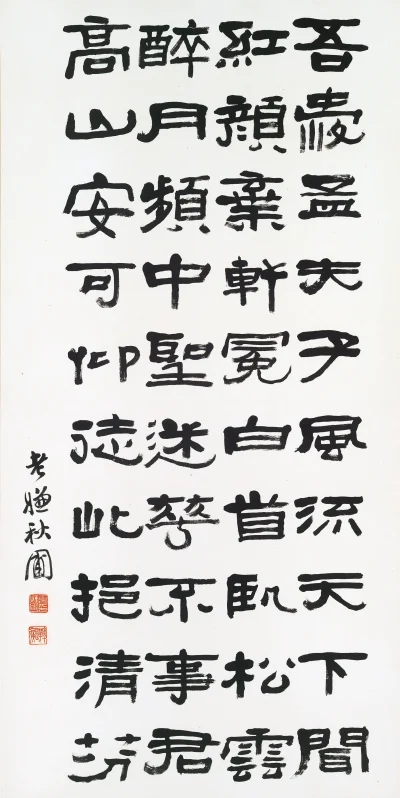 吾愛孟夫子風流天下聞
紅顏棄軒冕白首臥松雲
醉月頻中聖迷華不事君
高山安可仰徒此挹清芬
老嫌秋圃